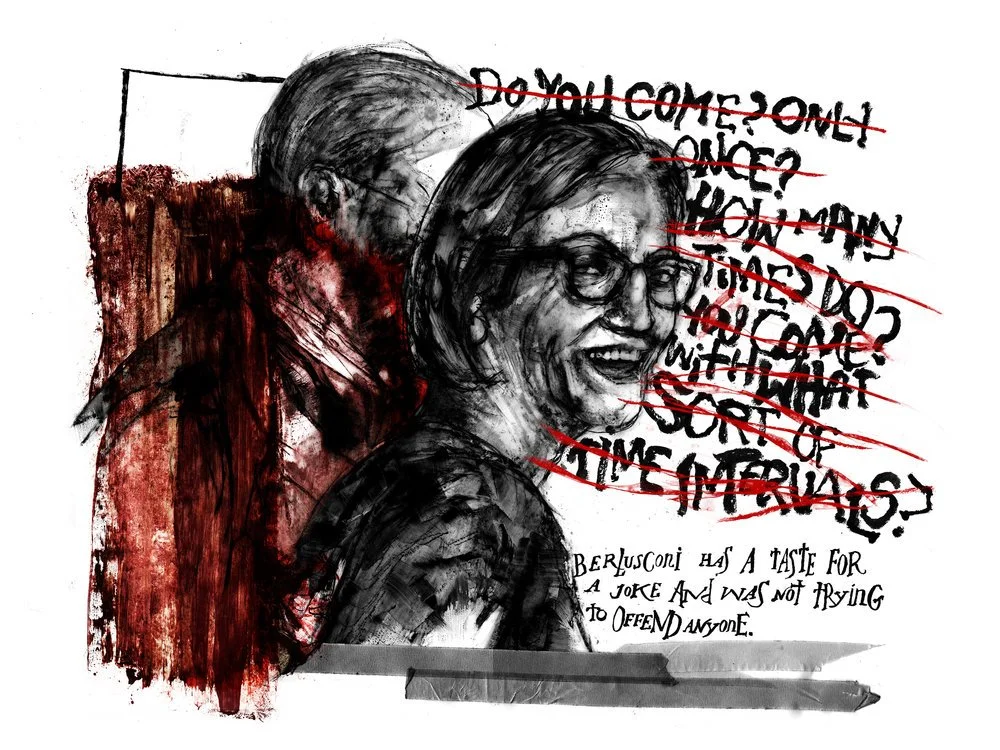 DO YOU COME? ONLY
ONCE?
HOW MANY
TIMES DO?
YOU COME?
WITH WHAT
SORT OF
TIME INTERVALS?
BERLUSCONI HAS A TASTE FOR
A JOKE AND WAS NOT TRYING
TO OFFEND ANYONE.